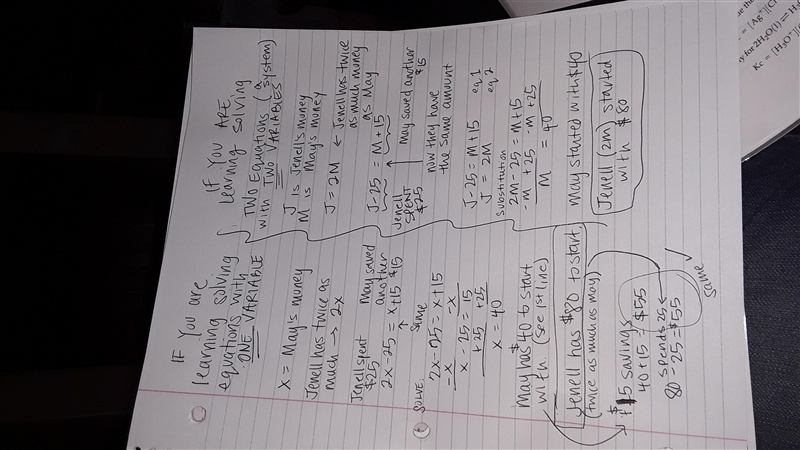 IF You are
learning solving
equations with
ONE VARIABLE
X = May's money
Jenell has twice as
much → 2x
Jenell spent
$25
may saved
another
$15
2x-25 = x+15
same
SOLVE.
2x-25 = x+15
-x -x
x - 25 = 15
+25 +25
x = 40
May has $40 to start
with. (see 1st line)
Jenell has $80 to start.
(twice as much as may)
$15 savings
40+15 = $55
spends 25
80 - 25 = $55
same ✓
IF YOU ARE
learning solving
TWO EQUATIONS (a
system)
with TWO VARIABLES
J is Jenell's money
M is May's money
J = 2M ← Jenell has twice
as much money
as May
J-25 = M+15
Jenell
SPENT
$25
May saved another
$15
now they have
the same amount
J-25 = M+15 eq 1
J = 2M eq 2
substitution
2M-25 = M+15
-M +25 -M +25
M = 40
May started with $40
Jenell (2m) started
with $80
for 2H₂O(l) ⇌ H₃
Kc = [H₃O⁺][
= [Ag⁺][C